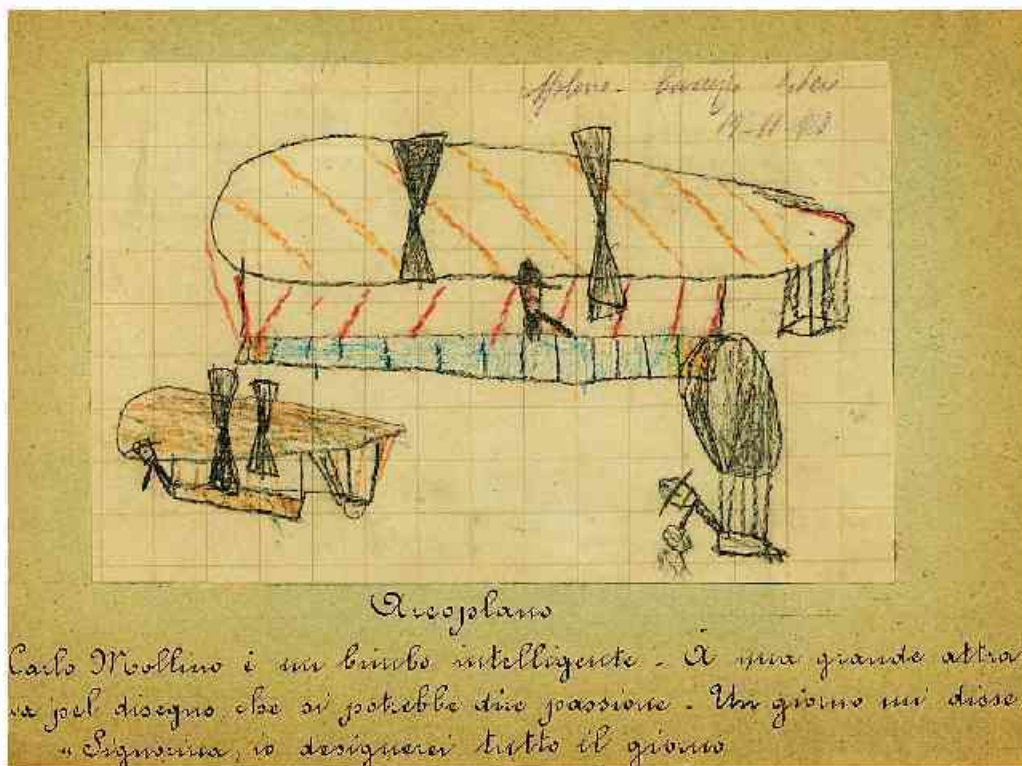 19-11-913
Areoplano
Carlo Mollino è un bimbo intelligente - À una grande attra
va pel disegno che si potrebbe dire passione - Un giorno mi disse
" Signorina, io designerei tutto il giorno